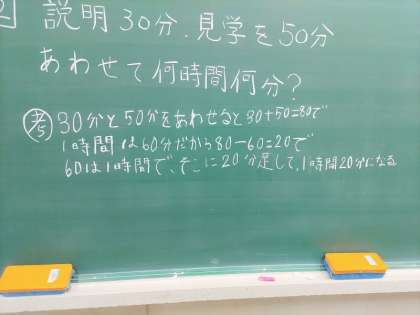 説明30分、見学を50分
あわせて何時間何分?
考 30分と50分をあわせると30+50=80で
1時間は60分だから80-60=20で
60は1時間で、そこに20分足して、1時間20分になる